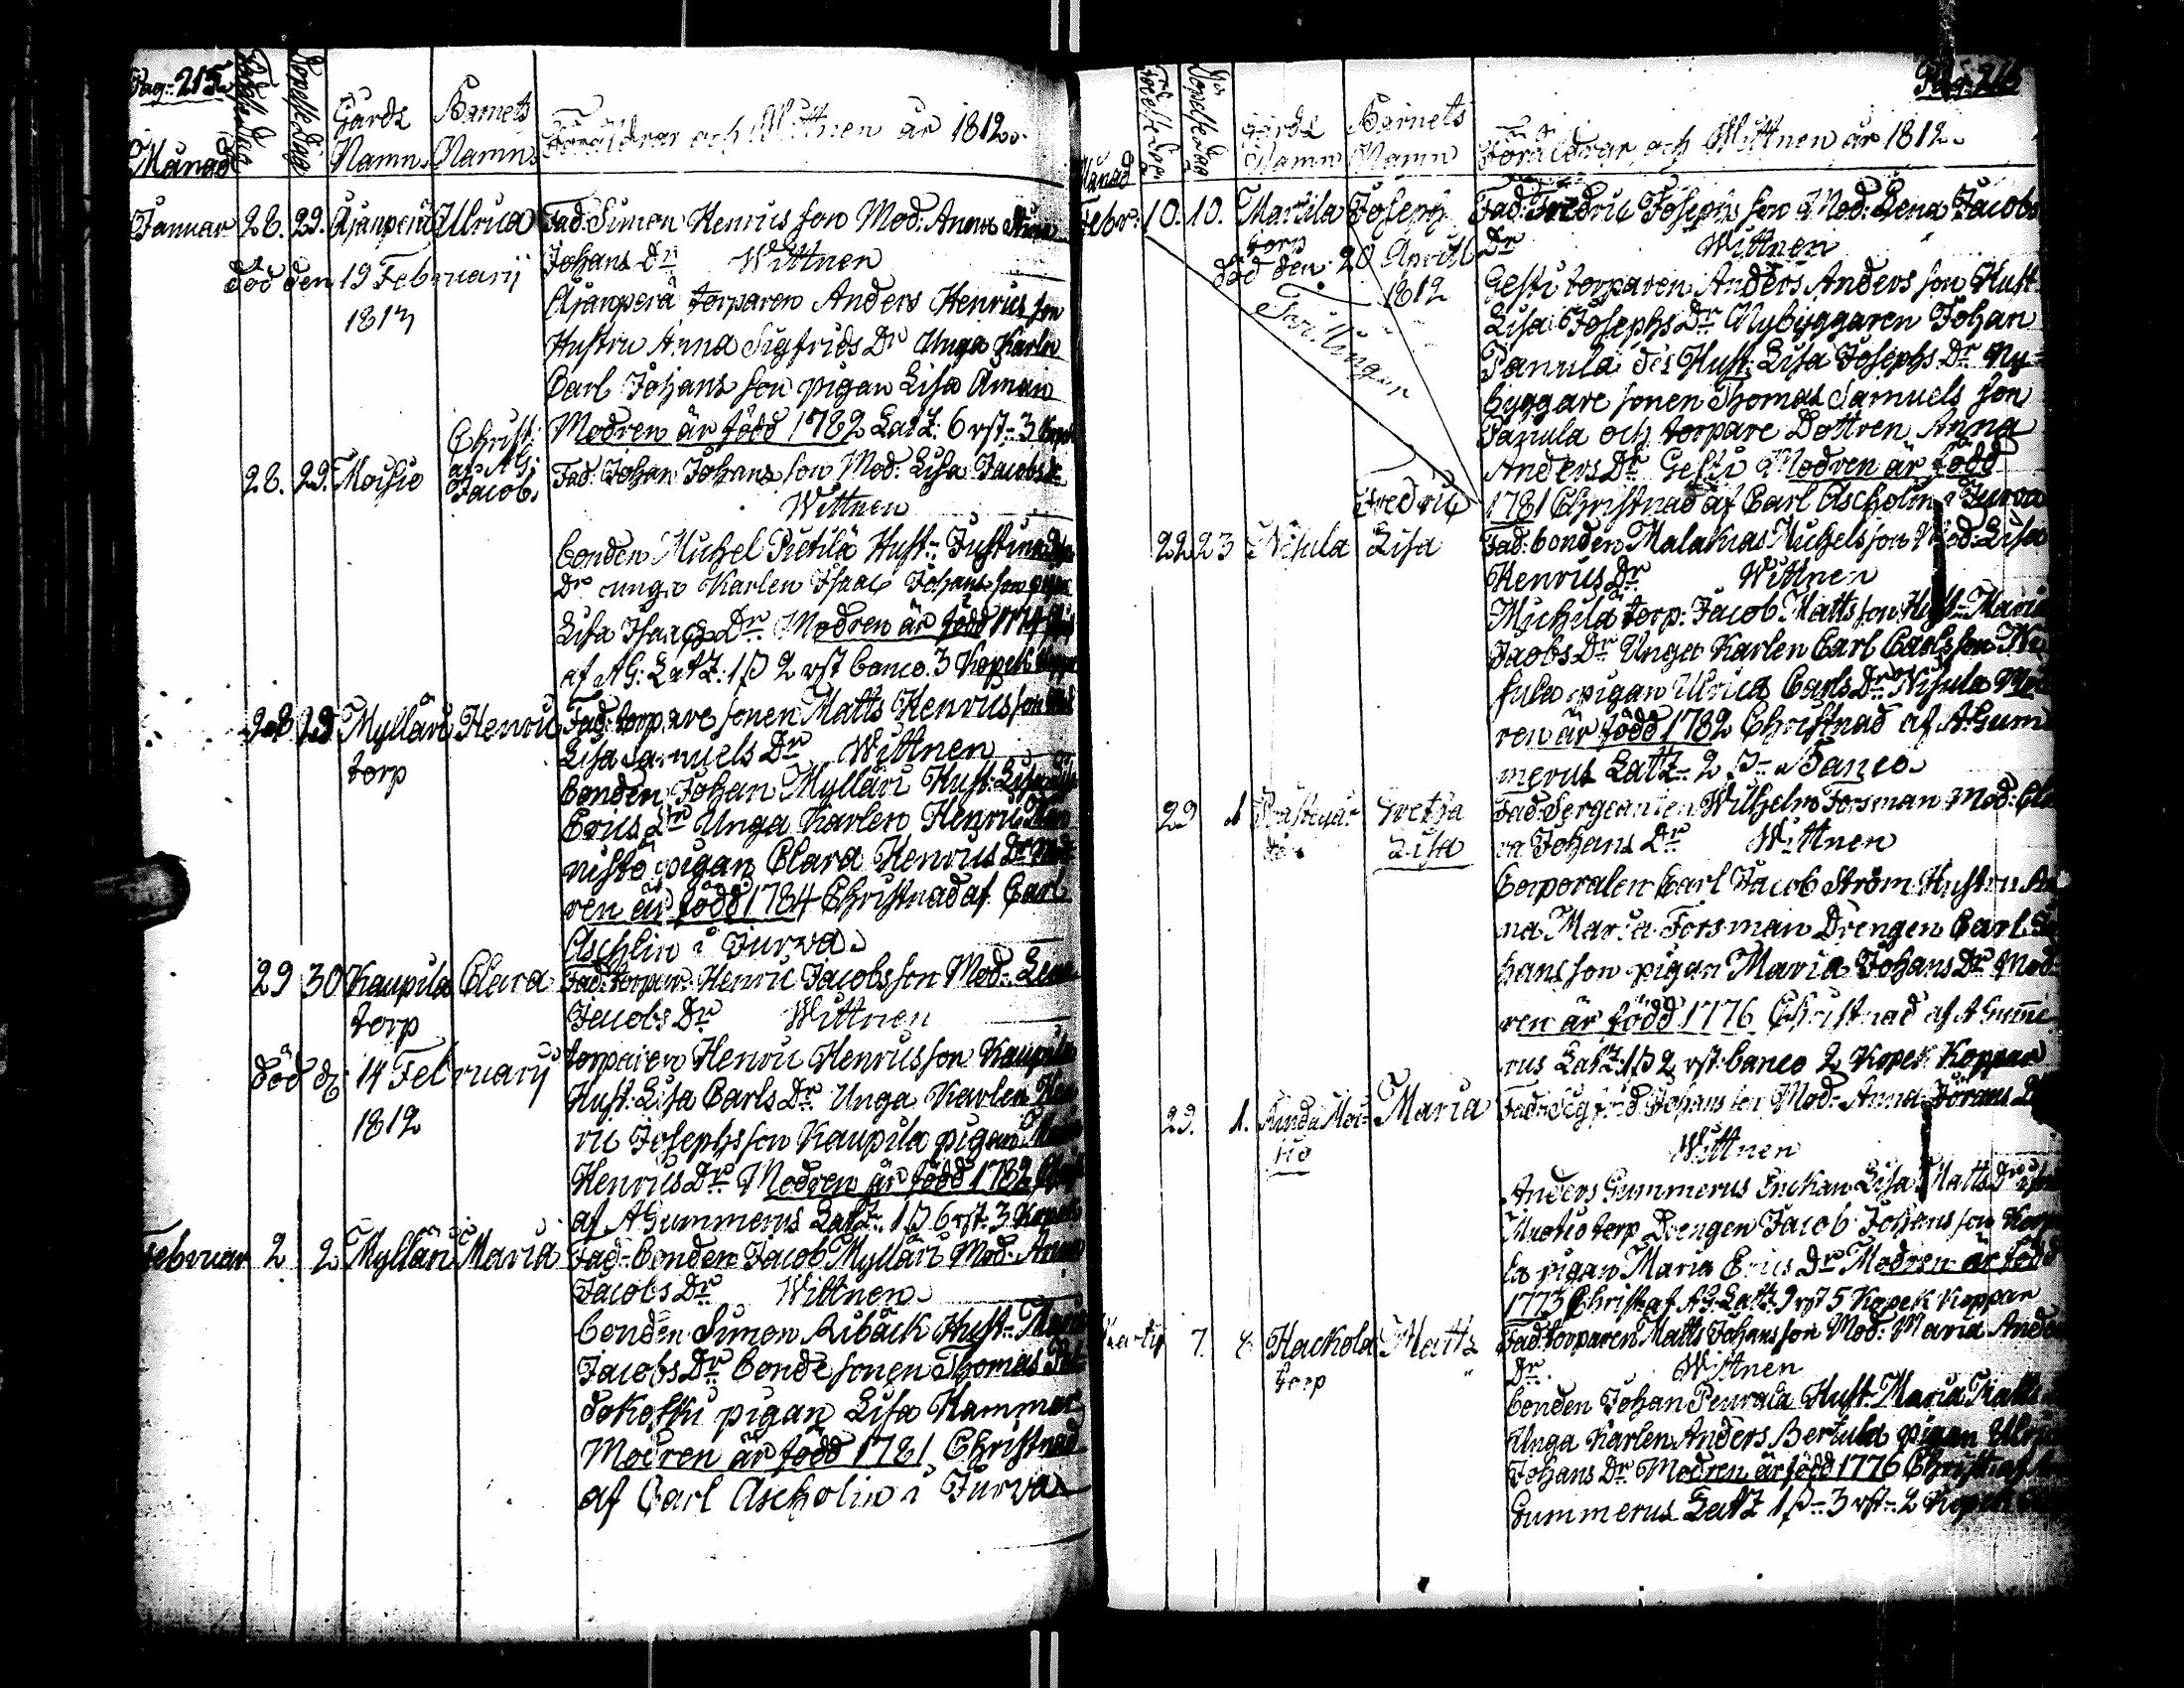 Pag: 215.
Månad
Födelse Dag
Döpelse Dag
Gårds Namn
Barnets Namn
Föräldrar och Wittnen år 1812.
Januar 28. 29. Ulrica Fad: Simon Henrics son Mod: Anna
Johans Dr Wittnen
död den 19 Februarij
torparen Anders Henrics son
Hustru Anna Sigfrids Dr Unga Karlen
Carl Johans son pigan Lisa
Modren är född 1782 6 rst: 3
28. 29. Moisio Christ: af AG: Jacob Fad: Johan Johans son Mod: Lisa Jacobs Dr
Wittnen
bonden Michel Pietilä Hust: Justina
Dr unga Karlen Isaac Johans son
Lisa Isaacs Dr Modren är född
af AG: 1 β 2 rst banco. 3 Kopek
28 29 Mylläri torp Henric Fad: torpare sonen Matts Henrics son
Lisa Samuels Dr Wittnen
bonden Johan Mylläri Hust: Lisa
Erics Dr Unga Karlen Henric
pigan Clara Henrics Dr
ren är född 1784 Christnad af Carl
Aschlin i Jurva
29 30 Kaupila torp Clara Fad: torpar: Henric Jacobs son Mod: Lena
Jacobs Dr Wittnen
död d: 14 Februarij 1812
torparen Henric Henrics son Kaupila
Hust: Lisa Carls Dr Unga Karlen Hen
ric Josephs son Kaupila pigan
Henrics Dr Modren är född 1782
af AGummerus 1 β 6 rst: 3 Kopek
Februar 2 2 Mylläri Maria Fad: bonden Jacob Mylläri Mod: Anna
Jacobs Dr Wittnen
bonden Simon Ribäck Hust: Maria
Jacobs Dr bonde sonen Thomas
dakoski pigan Lisa Hammar
Modren är född 1781 Christnad
af Carl Ascholin i Jurva
Månad
Födelse Dag
Döpelse Dag
Gårds Namn
Barnets Namn
Föräldrar och Wittnen år 1812.
Febr: 10. 10. Martila torp Joseph Fad: Fredric Josephs son Mod: Lena Jacobs
Dr Wittnen
död den 20 April 1812
Tvillingar
torparen Anders Anders son Hust:
Lisa Josephs Dr Nybyggaren Johan
Panula des Hust: Lisa Josephs Dr Ny=
byggare sonen Thomas Samuels son
Panula och torpare Dottren Anna
Anders Dr Modren är född
Fredric
1781 Christnad af Carl Ascholin i Jurva
22 23 Nisula Lisa Fad: bonden Malakias Michels son Mod: Lisa
Henrics Dr Wittnen
torp: Jacob Matts son Hust: Maria
Jacobs Dr Unga Karlen Carl Carls son Ni
sula pigan Ulrica Carls Dr Nisula Mod
ren är född 1782 Christnad af AGum
merus 2 β Banco
29 1 Gretha Lisa Fad: Sergeanten Wilhelm Forsman Mod: Cla
ra Johans Dr Wittnen
Corporalen Carl Jacob Ström Hustru An
na Maria Forsman Drengen Carl Jo
hans son pigan Maria Johans Dr Mod
ren är född 1776 Christnad af AGumme
rus 1 β 2 rst banco 2 Kopek Koppar
29. 1. Maria Fad: Sigfrid Johans son Mod: Anna Görans Dr
Wittnen
Anders Gummerus Enckan Lisa Matts Dr
torp Drengen Jacob Johans son
la pigan Maria Erics Dr Modren är född
1773 Christ: af AG: 9 rst 5 Kopek Koppar
Martij 7. 8 Hackola torp Matts Fad: torparen Matts Johans son Mod: Maria Anders
Dr. Wittnen
bonden Johan Penrala Hust: Maria Matts
Unga Karlen Anders Bertula pigan Ulrica
Johans Dr Modren är född 1776 Christ: af
Gummerus 1 β 3 rst: 2 Kopek